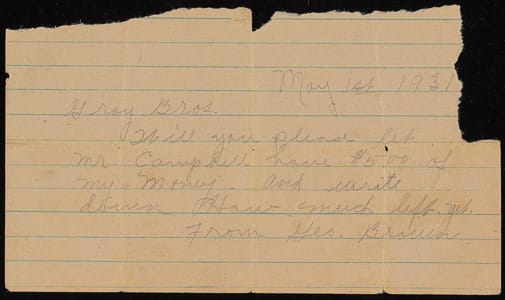 May 1st, 1931
Gray Bros.
Will you please let
Mr. Campbell have $5.00 of
my Money. and write
down How much left. yet.
From Geo. Brown